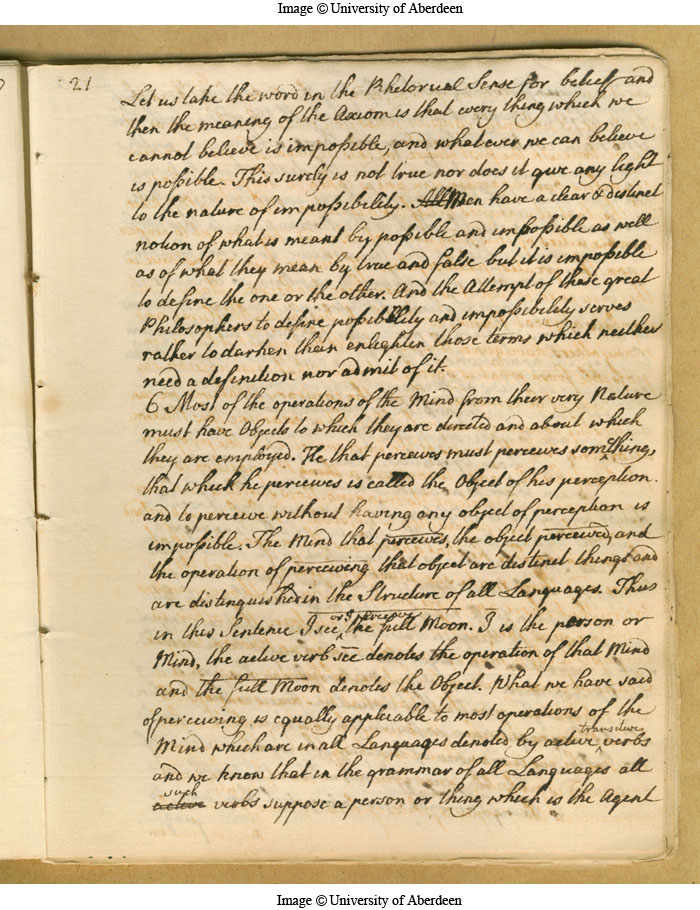 Image © University of Aberdeen
21
Let us take the word in the Rhetorical Sense for belief and
then the meaning of the Axiom is that every thing which we
cannot believe is impossible, and whatever we can believe
is possible. This surely is not true nor does it give any light
to the nature of impossibility. All Men have a clear & distinct
notion of what is meant by possible and impossible as well
as of what they mean by true and false but it is impossible
to define the one or the other. And the Attempt of these great
Philosophers to define possibility and impossibility serves
rather to darken than enlighten those terms which neither
need a definition nor admit of it.
6 Most of the operations of the Mind from their very Nature
must have Objects to which they are directed and about which
they are employed. He that perceives must perceives something,
that which he perceives is called the Object of his perception.
and to perceive without having any object of perception is
impossible. The Mind that perceives, the object perceived, and
the operation of perceiving that object are distinct things and
are distinguished in the Structure of all Languages. Thus
in this Sentence I see, or I perceive the full Moon. I is the person or
Mind, the active verb see denotes the operation of that Mind
and the full Moon denotes the Object. What we have said
of perceiving is equally applicable to most operations of the
Mind which are in all Languages denoted by active transitive verbs
and we know that in the grammar of all Languages all
active such verbs suppose a person or thing which is the Agent
Image © University of Aberdeen